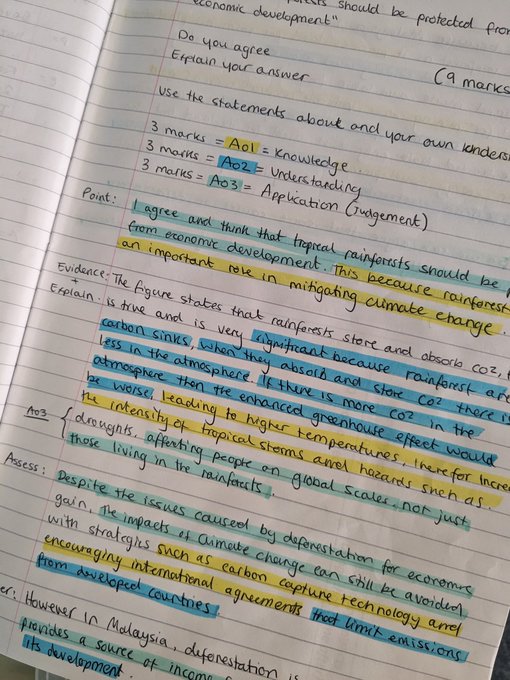 should be protected from
economic development"
Do you agree
Explain your answer
(9 marks
Use the statements above and your own
3 marks = AO1 = Knowledge.
3 marks = AO2 = Understanding
3 marks = AO3 = Application (Judgement)
Point: I agree and think that tropical rainforests should be
from economic development. This because rainforest
an important role in mitigating climate change.
Evidence: The figure states that rainforests store and absorb CO2,
+
Explain. is true and is very significant because rainforest are
carbon sinks, when they absorb and store CO2 there is
less in the atmosphere. If there is more CO2 in the
atmosphere then the enhanced greenhouse effect would
be worse, leading to higher temperatures, therefor
the intensity of tropical storms and hazards such as.
AO3 { droughts, affecting people on global scales, not just
those living in the rainforests.
Assess: Despite the issues caused by deforestation for economic
gain, the impacts of climate change can still be avoided
with strategies such as carbon capture technology and
encouraging international agreements that limit emissions
from developed countries
However in Malaysia, deforestation is
provides a source of income
its development.